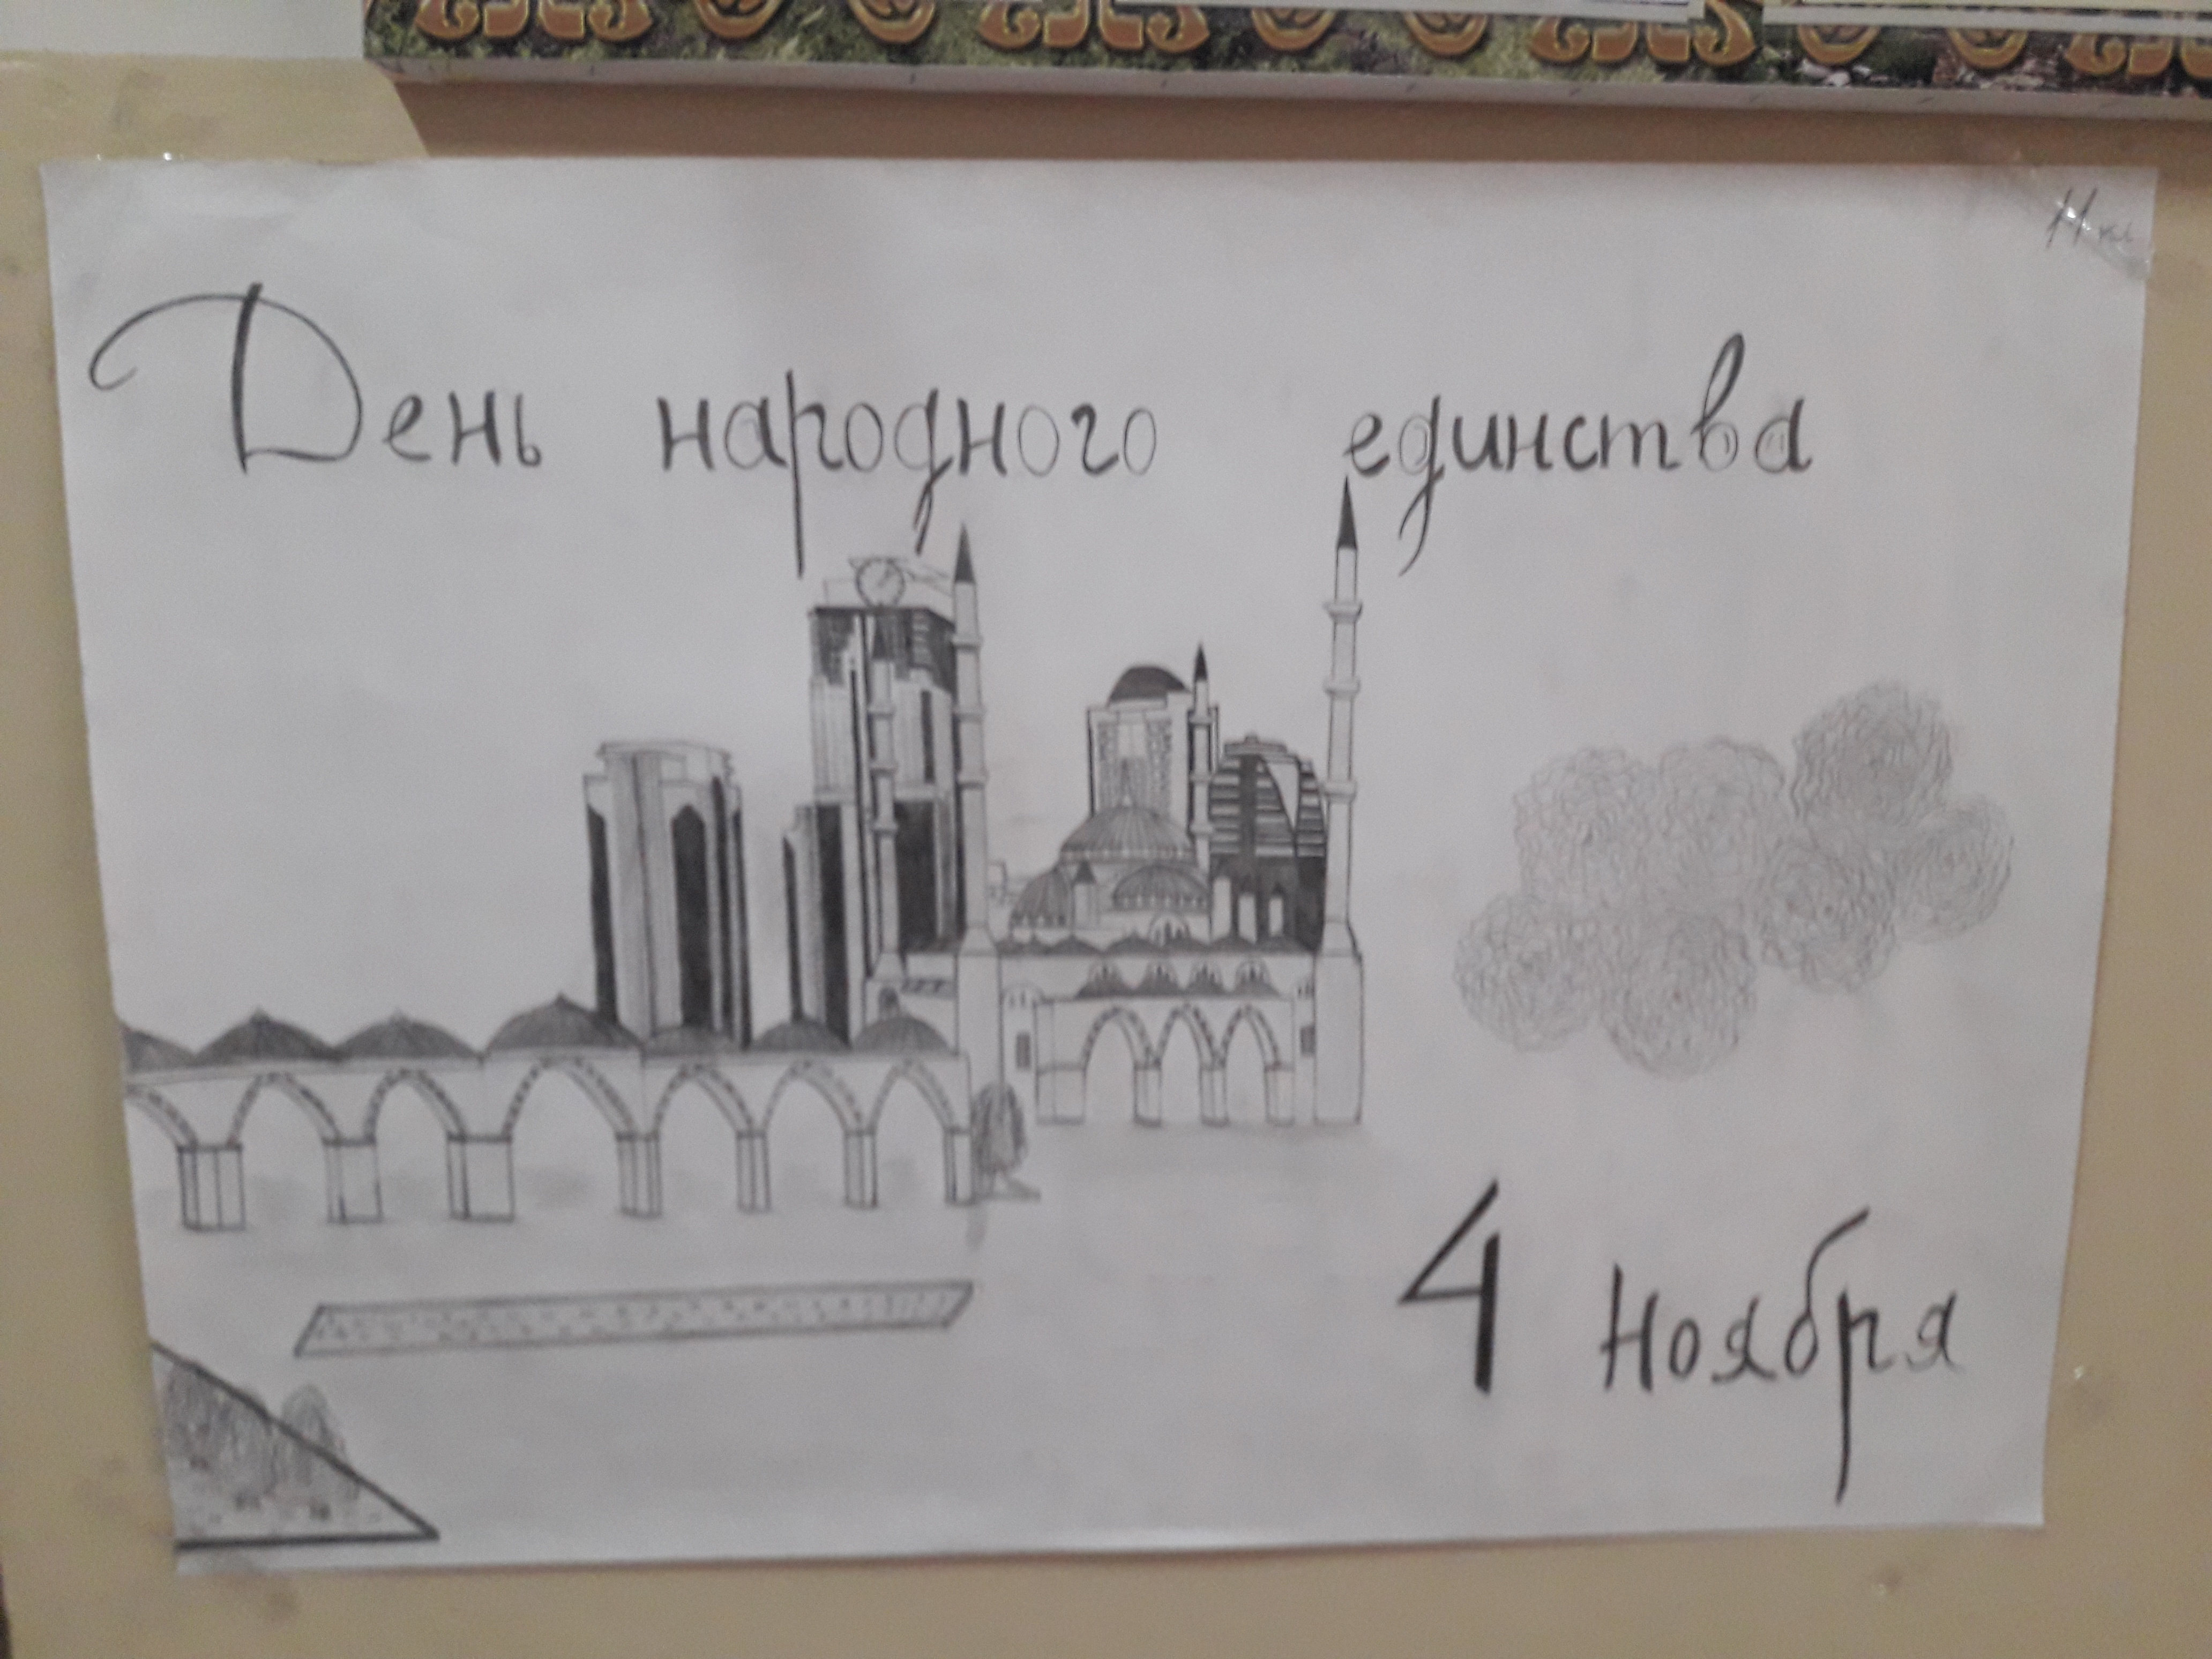 11 кл
День народного единства
4 ноября